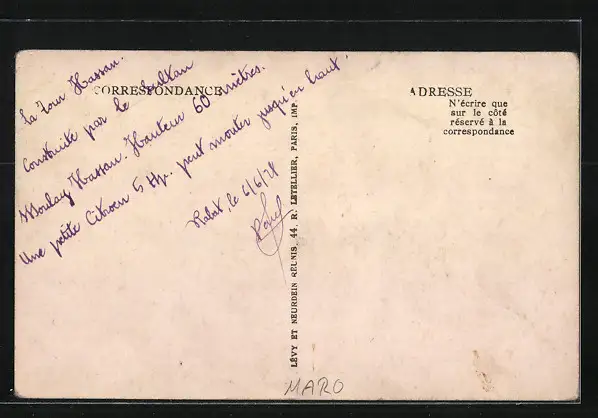 CORRESPONDANCE
La tour Hassan.
Construite par le sultan
Moulay Hassan. Hauteur 60 mètres.
Une petite Citroën 5 Hp. peut monter jusqu'en haut!
Rabat, le 6/6/28
LÉVY ET NEURDEIN RÉUNIS, 44, R. LETELLIER, PARIS, IMP.
ADRESSE
N'écrire que
sur le côté
réservé à la
correspondance
MARO